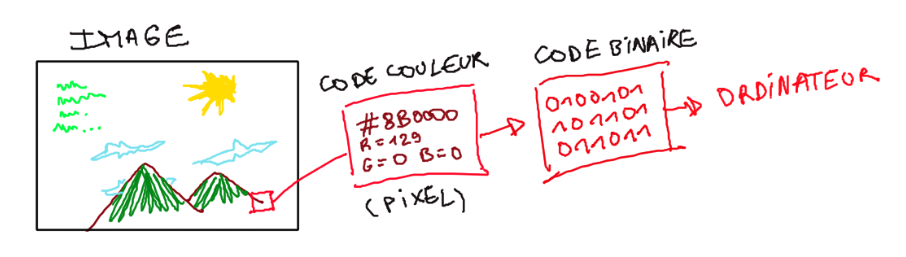 IMAGE
CODE COULEUR
#8B0000
R=129
G=0 B=0
(PiXEL)
CODE BiNAiRE
0100101
101101
011011
ORDiNATEUR